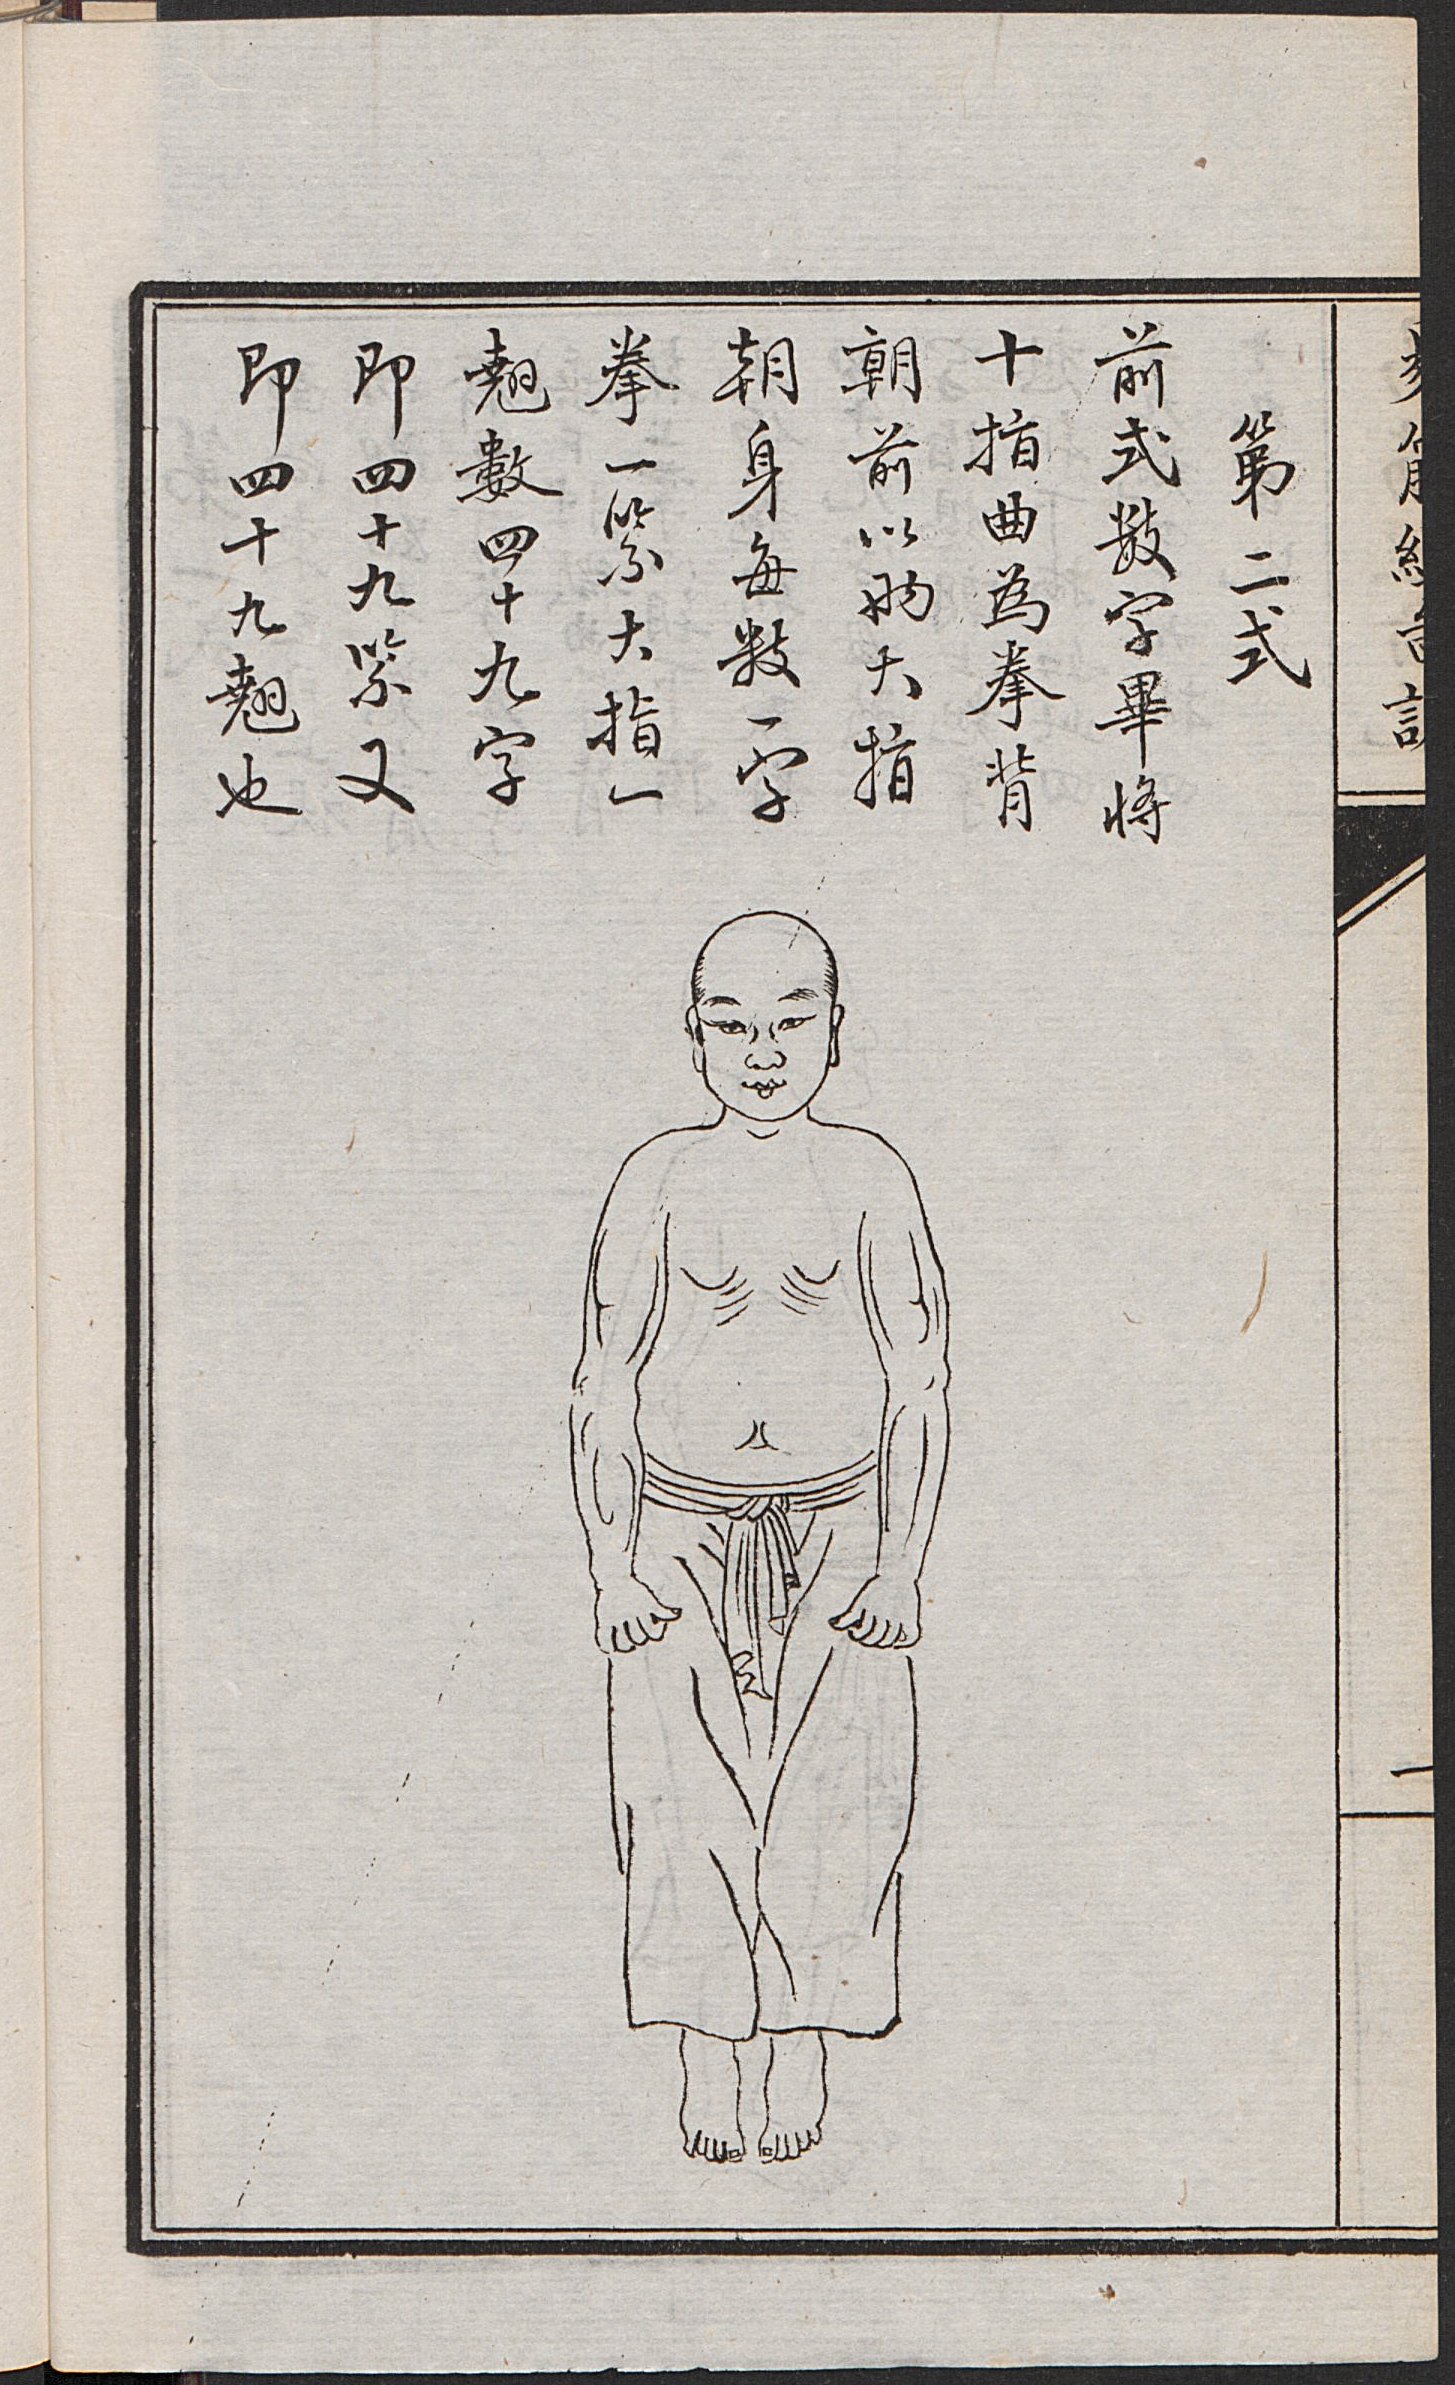 第二式
前式数字畢将
十指曲為拳背
朝前以两大指
朝身每数一字
拳一紧大指一
翹數四十九字
即四十九紧又
即四十九翹也
一